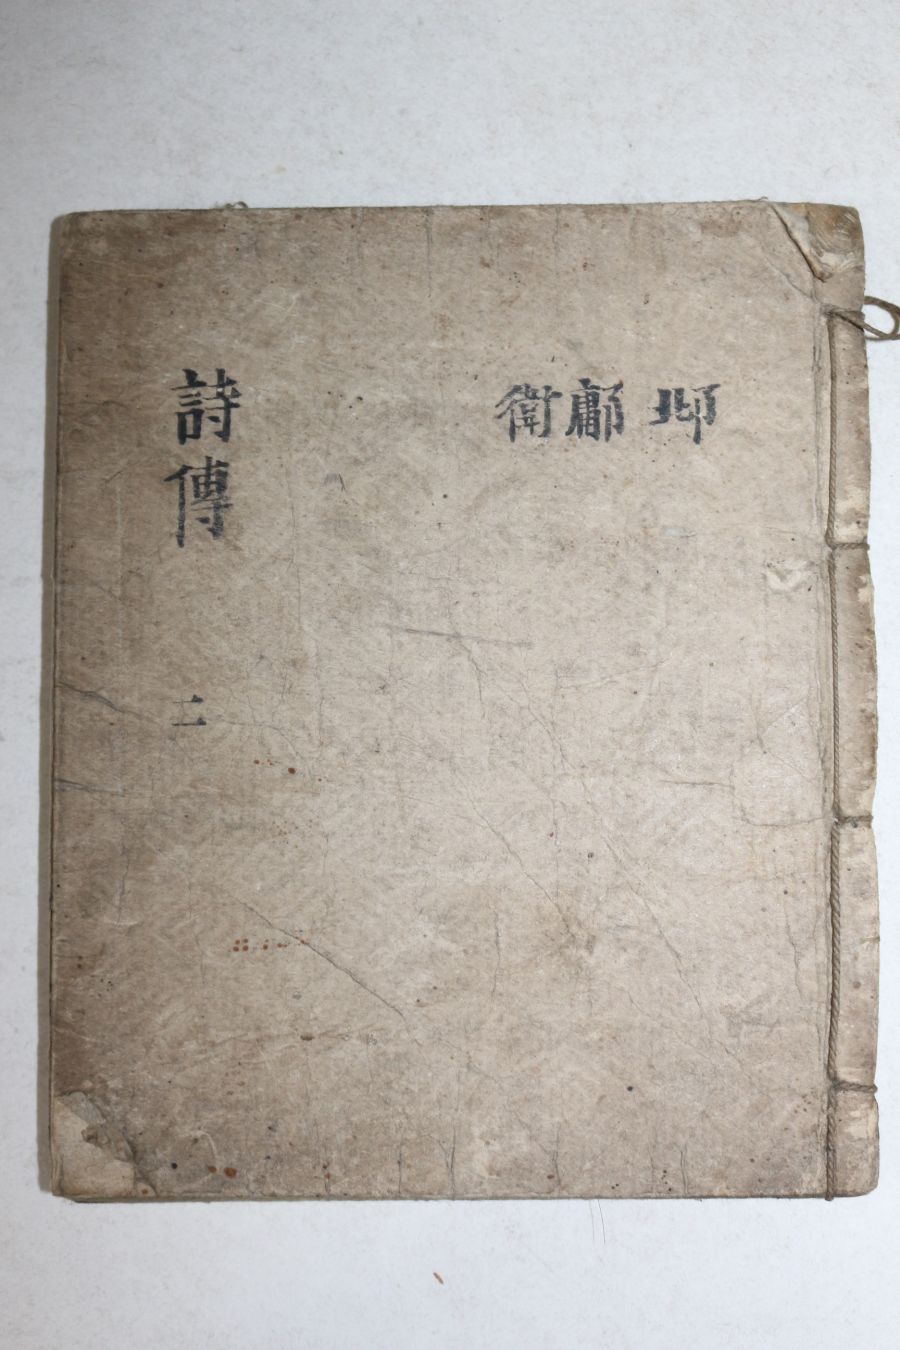 邶
鄘
衛
詩傳 二